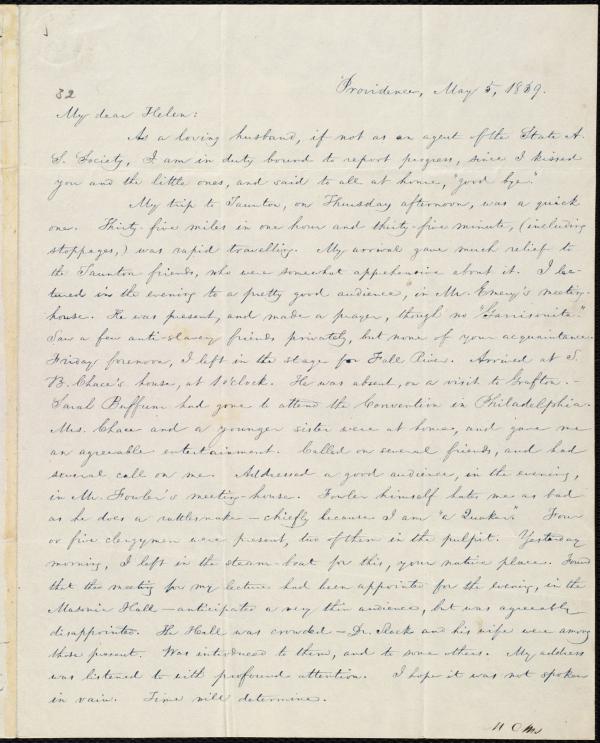 32
Providence, May 5, 1839.
My dear Helen:
As a loving husband, if not as an agent of the State A.
S. Society, I am in duty bound to report progress, since I kissed
you and the little ones, and said to all at home, "good bye."
My trip to Taunton, on Thursday afternoon, was a quick
one. Thirty five miles in one hour and thirty-five minutes, (including
stoppages,) was rapid travelling. My arrival gave much relief to
the Taunton friends, who were somewhat apprehensive about it. I lec-
tured in the evening to a pretty good audience, in Mr. Emery's meeting-
house. He was present, and made a prayer, though no "Garrisonite."
Saw a few anti-slavery friends privately, but none of your acquaintance.
Friday forenoon, I left in the stage for Fall River. Arrived at S.
B. Chace's house, at 1 o'clock. He was absent, on a visit to Grafton. -
Sarah Buffum had gone to attend the Convention in Philadelphia.
Mrs. Chace and a younger sister were at home, and gave me
an agreeable entertainment. Called on several friends, and had
several call on me. Addressed a good audience, in the evening,
in Mr. Fowler's meeting-house. Fowler himself hates me as bad
as he does a rattlesnake — chiefly because I am "a Quaker." Four
or five clergymen were present, two of them in the pulpit. Yesterday
morning, I left in the steam-boat for this, your native place. Found
that the meeting for my lecture had been appointed for the evening, in the
Masonic Hall — anticipated a very thin audience, but was agreeably
disappointed. The Hall was crowded — Dr. and his wife were among
those present. Was introduced to them, and to some others. My address
was listened to with profound attention. I hope it was not spoken
in vain. Time will determine.